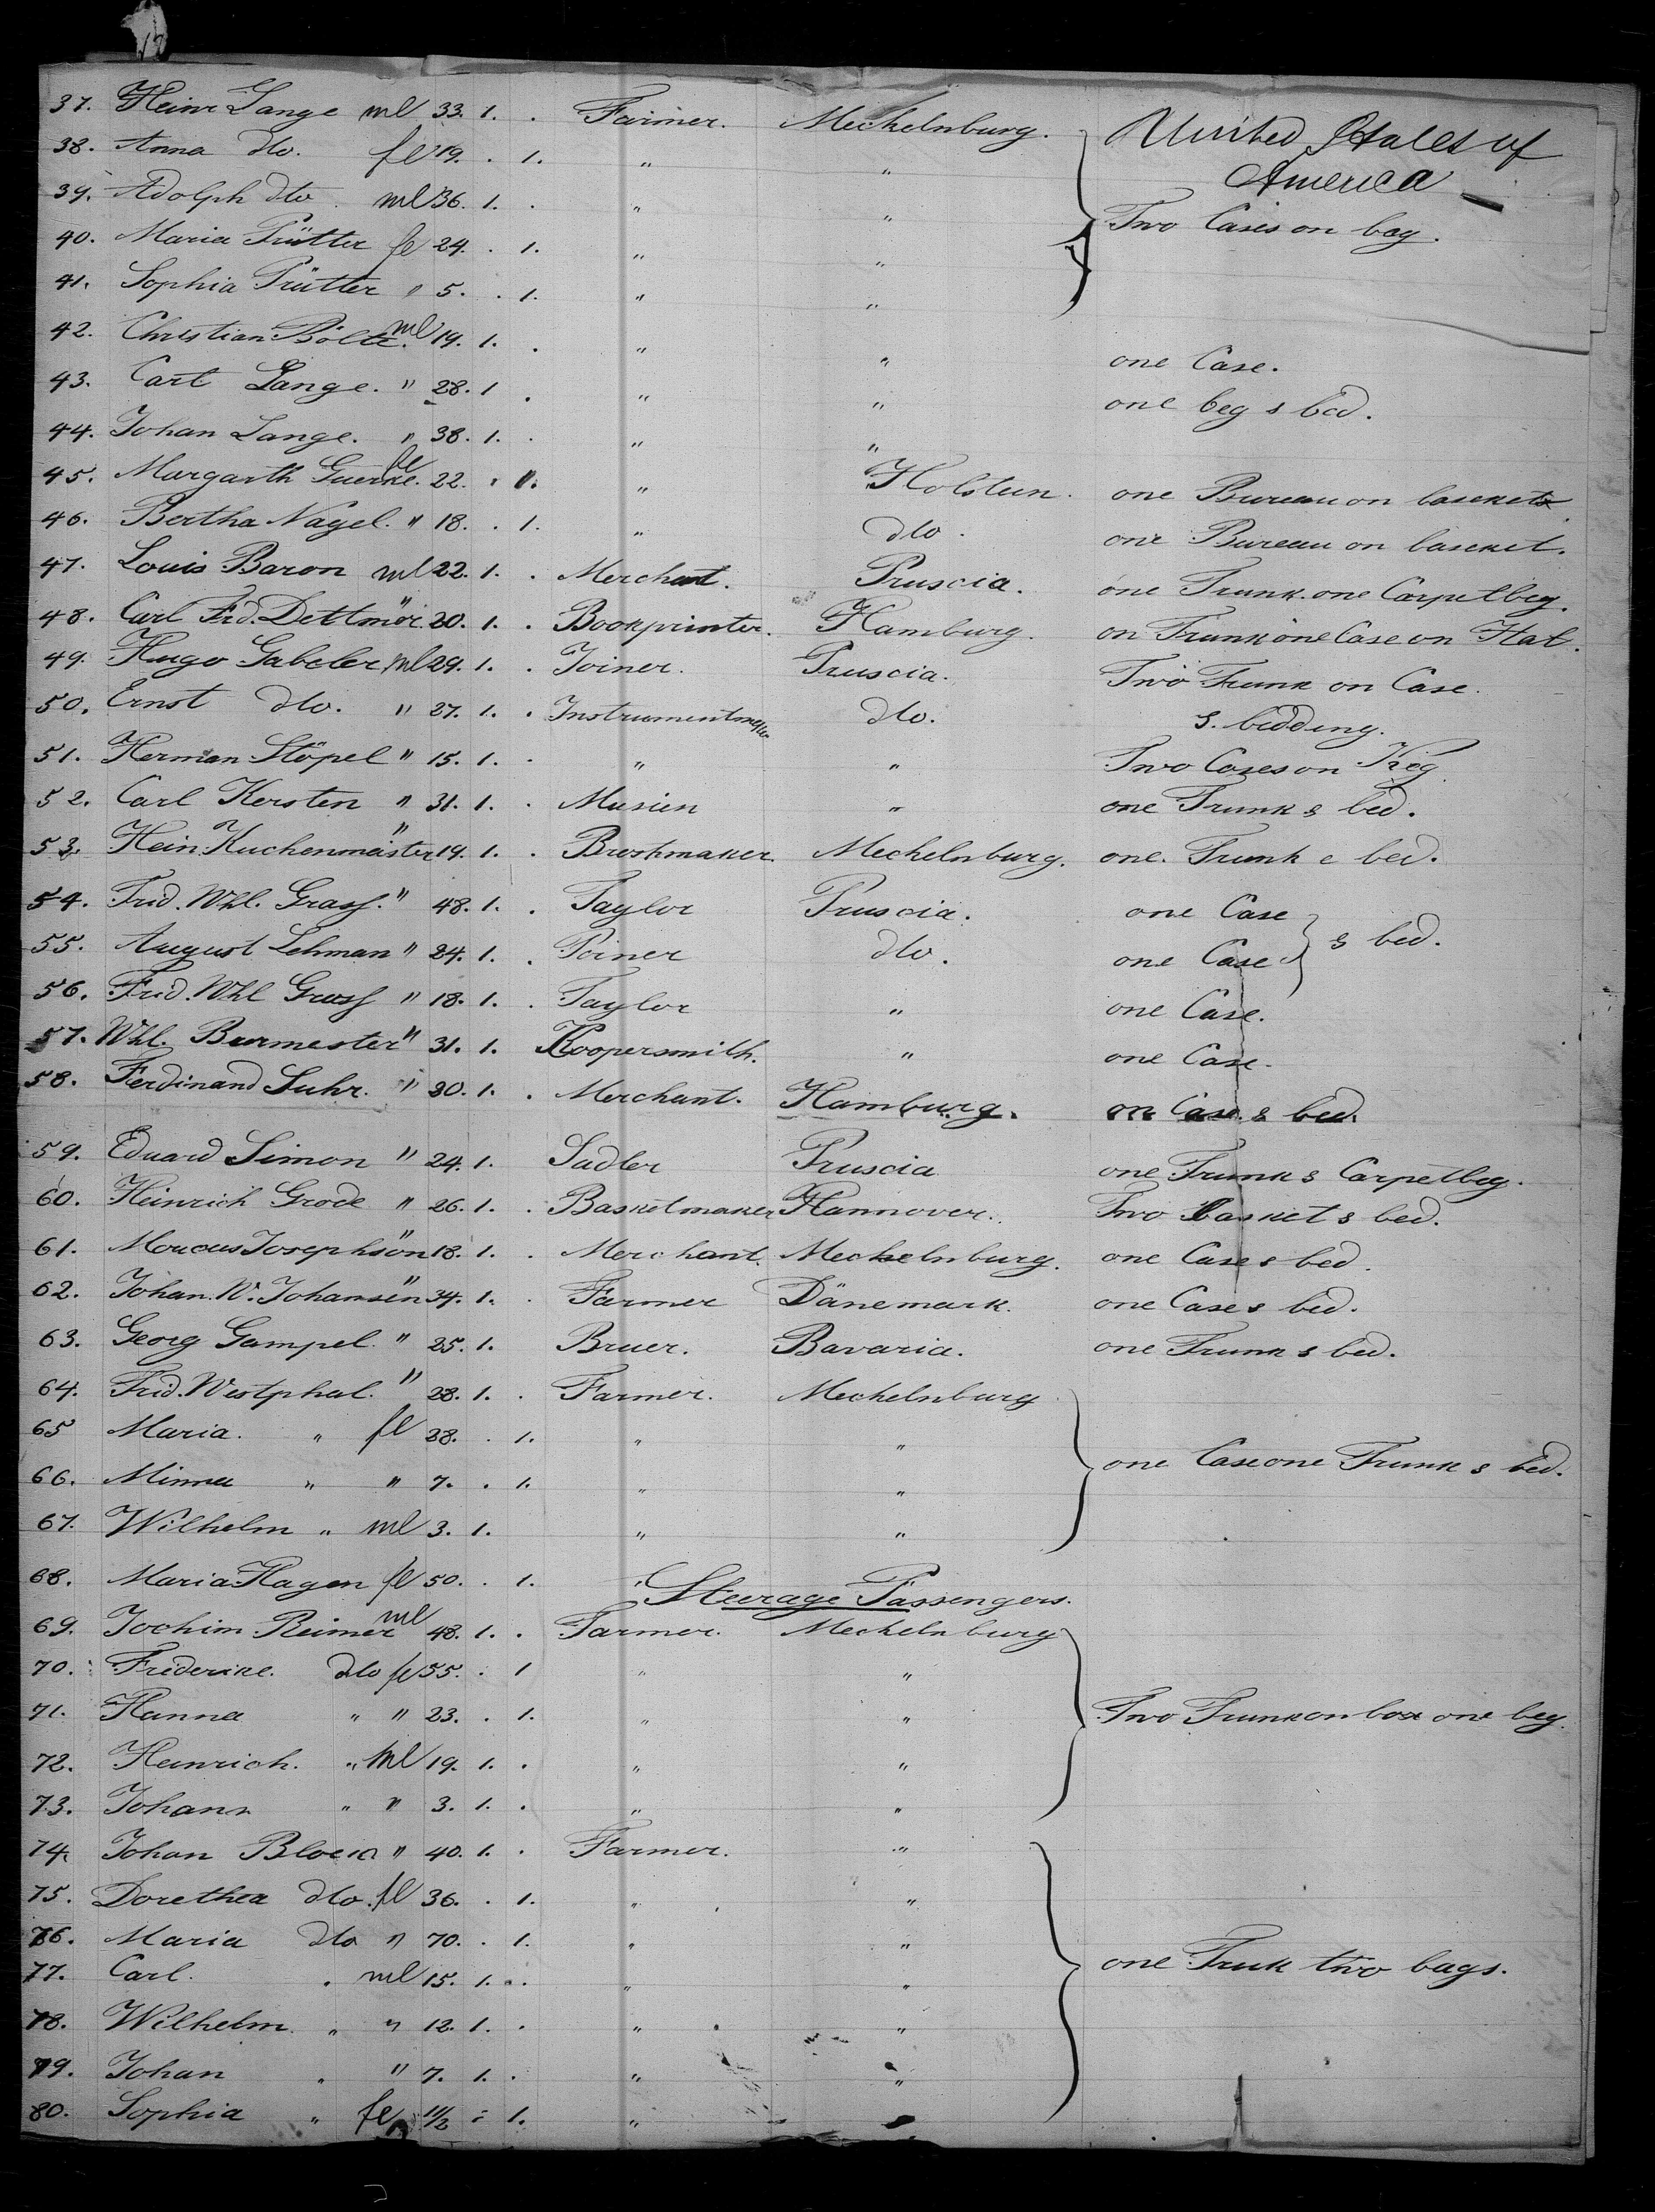 37. Heinr Lange ml 33. 1. . Farmer. Meckelnburg. United States of
America
38. Anna dto. fe 19. . 1. " "
39. Adolph dto. ml 36. 1. . " " Two Cases on bag.
40. Maria Trütter fe 24. . 1. " "
41. Sophia Trütter " 5. . 1. " "
42. Christian Bölte. ml 19. 1. . " " one Case.
43. Carl Lange. " 28. 1 . " " one beg & bed.
44. Johan Lange. " 38. 1. . " "
45. Margarth Guerke. fe 22. . 1. " Holstein. one Bureau on basket
46. Bertha Nagel. " 18. . 1. " dto. one Bureau on basket.
47. Louis Baron ml 22. 1. . Merchant. Pruscia. one Trunk. one Carpetbeg.
48. Carl Frd. Dettmer. " 20. 1. . Bookprinter. Hamburg. on Trunk one Case on Hat.
49. Hugo Gabeler ml 29. 1. . Joiner. Pruscia. Two Trunk on Case.
50. Ernst dto. " 27. 1. . Instrumentmaker dto. & bedding.
51. Herman Stöpel " 15. 1. . " " Two Cases on Keg.
52. Carl Kersten " 31. 1. . Musien " one Trunk & bed.
53. Hein. Kuchenmeister " 19. 1. . Brushmaker. Meckelnburg. one. Trunk & bed.
54. Frid. Whl. Grass. " 48. 1. . Taylor Pruscia. one Case
55. August Lehman " 24. 1. . Joiner dto. one Case & bed.
56. Frid. Whl Grass " 18. 1. . Taylor " one Case.
57. Whl. Burmester " 31. 1. Koopersmith. " one Case.
58. Ferdinand Suhr. " 20. 1. . Merchant. Hamburg. on Case. & bed.
59. Eduard Simon " 24. 1. Sadler Pruscia one Trunk & Carpetbeg.
60. Heinrich Grode " 26. 1. . Basketmaker Hannover. Two basket & bed.
61. Marcus Josephson " 18. 1. . Merchant. Meckelnburg. one Case & bed.
62. Johan. N. Johansen " 34. 1. . Farmer Dänemark. one Case & bed.
63. Georg Gampel. " 25. 1. Bruer. Bavaria. one Trunk & bed.
64. Frid. Westphal. " 28. 1. . Farmer. Meckelnburg
65 Maria. " fe 28. . 1. " "
one Case one Trunk & bed.
66. Minna " " 7. . 1. " "
67. Wilhelm " ml 3. 1. " "
68. Maria Hagen fe 50. . 1. "
Steerage Passengers.
69. Jochim Reimer ml 48. 1. . Farmer. Meckelnburg
70. Friderike. dto fe 55. . 1 " "
71. Hanna " " 23. . 1. " " Two Trunk on box one beg.
72. Heinrich. " ml 19. 1. . " "
73. Johann " " 3. 1. . " "
74. Johan " 40. 1. . Farmer. "
75. Dorethea dto. fe 36. . 1. " "
76. Maria dto " 70. . 1. " "
77. Carl. " ml 15. 1. . " " one Truk two bags.
78. Wilhelm. " " 12. 1. . " "
79. Johan " " 7. 1. . " "
80. Sophia " fe 11/2 . 1. " "